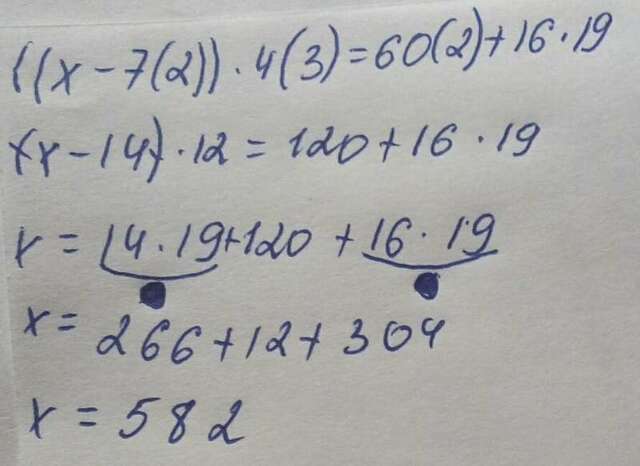 ((x-7(2))·4(3)=60(2)+16·19
(x-14)·12=120+16·19
x=14·19+120+16·19
x=266+12+304
x=582